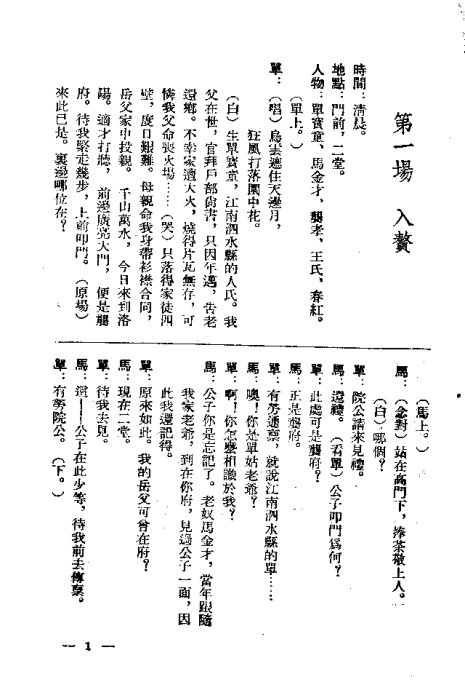 第一場　入贅
時間：淸晨。
地點：門前，二堂。
人物：單寶童、馬金才，龔老，王氏，春紅。
（單上。）
單：（唱）烏雲遮住天邊月，
狂風打落園中花。
（白）生單寶童，江南泗水縣的人氏。我
父在世，官拜戶部尙書，只因年邁，吿老
還鄕。不幸家遭大火，燒得片瓦無存，可
憐我父命喪火場……（哭）只落得家徒四
壁，度日艱難。母親命我身帶衫襟合同，
岳父家中投親。千山萬水，今日來到洛
陽。適才打聽，前邊廣亮大門，便是龔
府。待我緊走幾步，上前叩門。（原場）
來此已是。裏邊哪位在？
（馬上。）
馬：（念對）站在高門下，捧茶敬上人。
（白）哪個？
單：院公請來見禮。
馬：還禮。（看單）公子叩門爲何？
單：此處可是龔府？
馬：正是龔府。
單：有勞通禀，就說江南泗水縣的單……
馬：噢！你是單姑老爺？
單：啊！你怎麽相識於我？
馬：公子你是忘記了。老奴馬金才，當年跟隨
我家老爺，到在你府，見過公子一面，因
此我還記得。
單：原來如此。我的岳父可曾在府？
馬：現在二堂。
單：待我去見。
馬：這——公子在此少等，待我前去傳禀。
單：有勞院公。（下。）
— 1 —